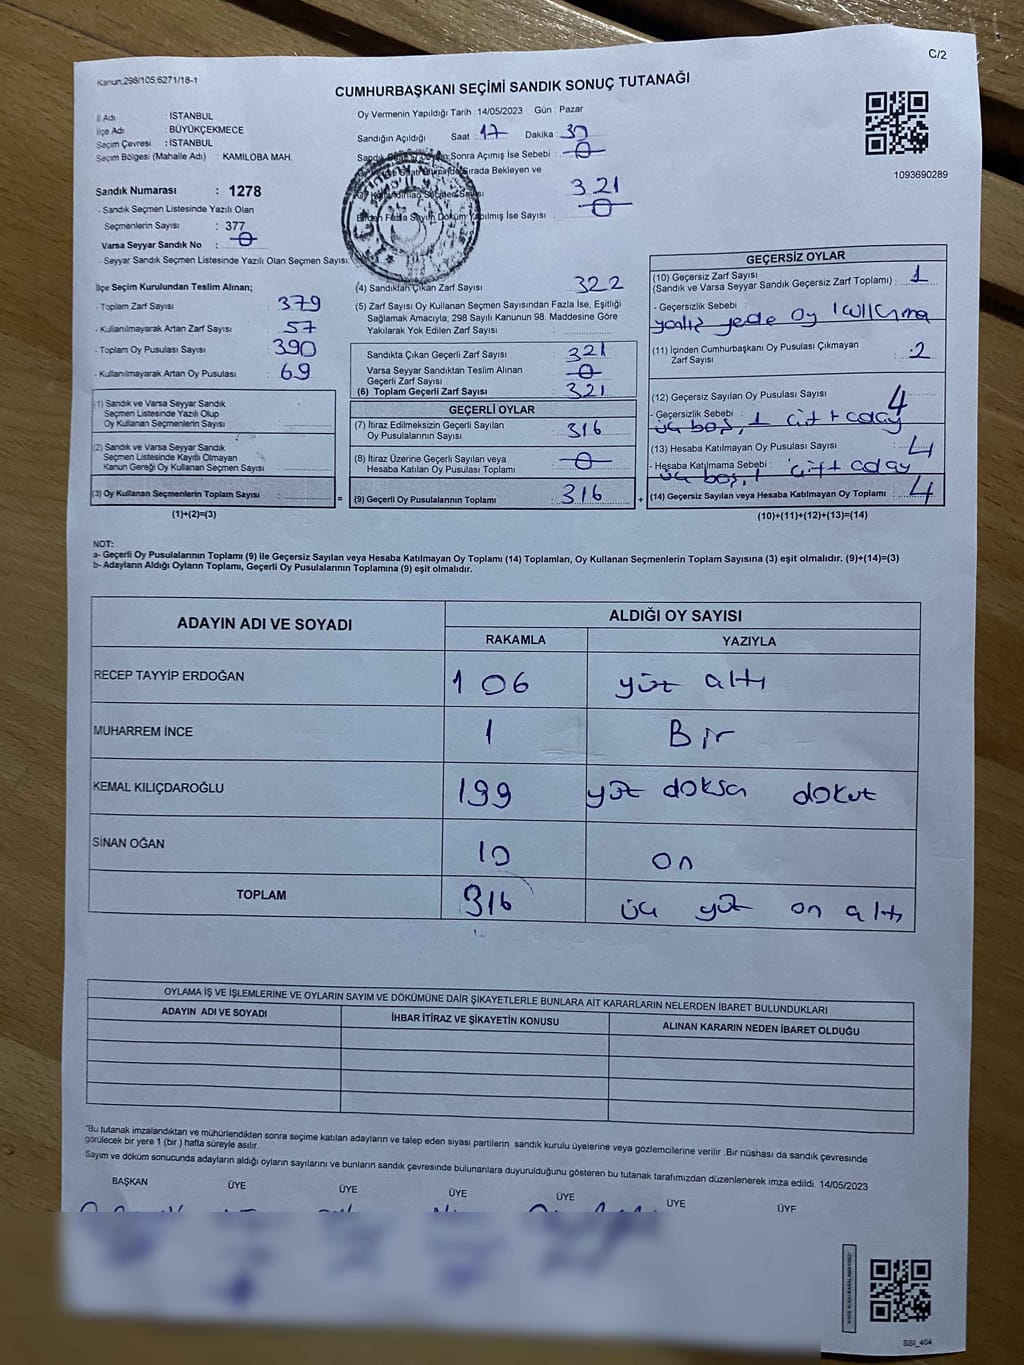 C/2
Kanun.298/105:6271/18-1
CUMHURBAŞKANI SEÇİMİ SANDIK SONUÇ TUTANAĞI
İl Adı : İSTANBUL
İlçe Adı : BÜYÜKÇEKMECE
Seçim Çevresi : İSTANBUL
Seçim Bölgesi (Mahalle Adı) : KAMİLOBA MAH.
Sandık Numarası : 1278
- Sandık Seçmen Listesinde Yazılı Olan
Seçmenlerin Sayısı : 377
Varsa Seyyar Sandık No : 0
- Seyyar Sandık Seçmen Listesinde Yazılı Olan Seçmen Sayısı:
Oy Vermenin Yapıldığı Tarih : 14/05/2023 Gün : Pazar
Sandığın Açıldığı Saat : 17 Dakika : 30
Sonra Açımış İse Sebebi : 0
Sırada Bekleyen ve
321
Fazla Sayım Döküm Yapılmış İse Sayısı : 0
1093690289
İlçe Seçim Kurulundan Teslim Alınan;
- Toplam Zarf Sayısı : 379
- Kullanılmayarak Artan Zarf Sayısı : 57
- Toplam Oy Pusulası Sayısı : 390
- Kullanılmayarak Artan Oy Pusulası : 69
(1) Sandık ve Varsa Seyyar Sandık
Seçmen Listesinde Yazılı Olup
Oy Kullanan Seçmenlerin Sayısı :
(2) Sandık ve Varsa Seyyar Sandık
Seçmen Listesinde Kayıtlı Olmayan
Kanun Gereği Oy Kullanan Seçmen Sayısı :
(3) Oy Kullanan Seçmenlerin Toplam Sayısı :
=
(1)+(2)=(3)
(4) Sandıktan Çıkan Zarf Sayısı : 322
(5) Zarf Sayısı Oy Kullanan Seçmen Sayısından Fazla İse, Eşitliği
Sağlamak Amacıyla, 298 Sayılı Kanunun 98. Maddesine Göre
Yakılarak Yok Edilen Zarf Sayısı :
Sandıkta Çıkan Geçerli Zarf Sayısı : 321
Varsa Seyyar Sandıktan Teslim Alınan
Geçerli Zarf Sayısı : 0
(6) Toplam Geçerli Zarf Sayısı : 321
GEÇERLİ OYLAR
(7) İtiraz Edilmeksizin Geçerli Sayılan
Oy Pusulalarının Sayısı : 316
(8) İtiraz Üzerine Geçerli Sayılan veya
Hesaba Katılan Oy Pusulası Toplamı : 0
(9) Geçerli Oy Pusulalarının Toplamı : 316
+
GEÇERSİZ OYLAR
(10) Geçersiz Zarf Sayısı
(Sandık ve Varsa Seyyar Sandık Geçersiz Zarf Toplamı) : 1
- Geçersizlik Sebebi :
oy
(11) İçinden Cumhurbaşkanı Oy Pusulası Çıkmayan
Zarf Sayısı : 2
(12) Geçersiz Sayılan Oy Pusulası Sayısı : 4
- Geçersizlik Sebebi :
üç boş, 1 çift + aday
(13) Hesaba Katılmayan Oy Pusulası Sayısı : 4
- Hesaba Katılmama Sebebi :
üç boş, 1 çift aday
(14) Geçersiz Sayılan veya Hesaba Katılmayan Oy Toplamı : 4
(10)+(11)+(12)+(13)=(14)
NOT:
a- Geçerli Oy Pusulalarının Toplamı (9) ile Geçersiz Sayılan veya Hesaba Katılmayan Oy Toplamı (14) Toplamları, Oy Kullanan Seçmenlerin Toplam Sayısına (3) eşit olmalıdır. (9)+(14)=(3)
b- Adayların Aldığı Oyların Toplamı, Geçerli Oy Pusulalarının Toplamına (9) eşit olmalıdır.
ADAYIN ADI VE SOYADI
ALDIĞI OY SAYISI
RAKAMLA YAZIYLA
RECEP TAYYİP ERDOĞAN 106 yüz altı
MUHARREM İNCE 1 Bir
KEMAL KILIÇDAROĞLU 199 yüz doksa dokuz
SİNAN OĞAN 10 on
TOPLAM 316 üç yüz on altı
OYLAMA İŞ VE İŞLEMLERİNE VE OYLARIN SAYIM VE DÖKÜMÜNE DAİR ŞİKAYETLERLE BUNLARA AİT KARARLARIN NELERDEN İBARET BULUNDUKLARI
ADAYIN ADI VE SOYADI İHBAR İTİRAZ VE ŞİKAYETİN KONUSU ALINAN KARARIN NEDEN İBARET OLDUĞU
"Bu tutanak imzalandıktan ve mühürlendikten sonra seçime katılan adayların ve talep eden siyasi partilerin sandık kurulu üyelerine veya gözlemcilerine verilir .Bir nüshası da sandık çevresinde
görülecek bir yere 1 (bir ) hafta süreyle asılır.
Sayım ve döküm sonucunda adayların aldığı oyların sayılarını ve bunların sandık çevresinde bulunanlara duyurulduğunu gösteren bu tutanak tarafımızdan düzenlenerek imza edildi. 14/05/2023
BAŞKAN ÜYE ÜYE ÜYE ÜYE ÜYE ÜYE
SSI_404